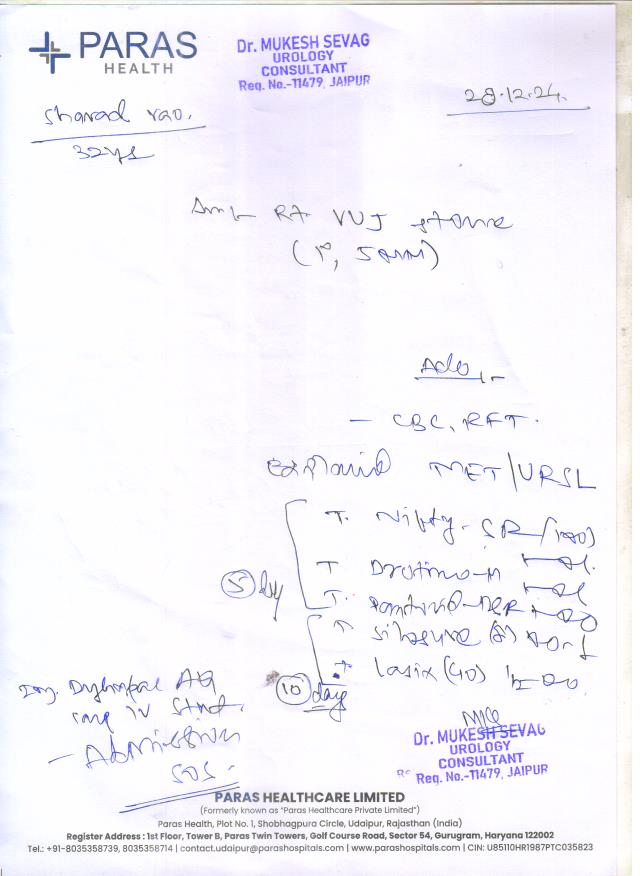 PARAS
HEALTH
Dr. MUKESH SEVAG
UROLOGY
CONSULTANT
Reg. No.-11479, JAIPUR
28.12.24.
Sharad rao.
32 ys
Rt VUJ stone
5mm)
Adv
- CBC, RFT.
explained MET/URSL
T. SR/
T Drotin-M
T. DSR
5 day
(8)
Lasix (40)
10 day
Inj. AQ
IV Stat.
- Admission
SOS.
Dr. MUKESH SEVAG
UROLOGY
CONSULTANT
Reg. No.-11479, JAIPUR
PARAS HEALTHCARE LIMITED
(Formerly known as "Paras Healthcare Private Limited")
Paras Health, Plot No. 1, Shobhagpura Circle, Udaipur, Rajasthan (India)
Register Address : 1st Floor, Tower B, Paras Twin Towers, Golf Course Road, Sector 54, Gurugram, Haryana 122002
Tel.: +91-8035358739, 8035358714 | contact.udaipur@parashospitals.com | www.parashospitals.com | CIN: U85110HR1987PTC035823